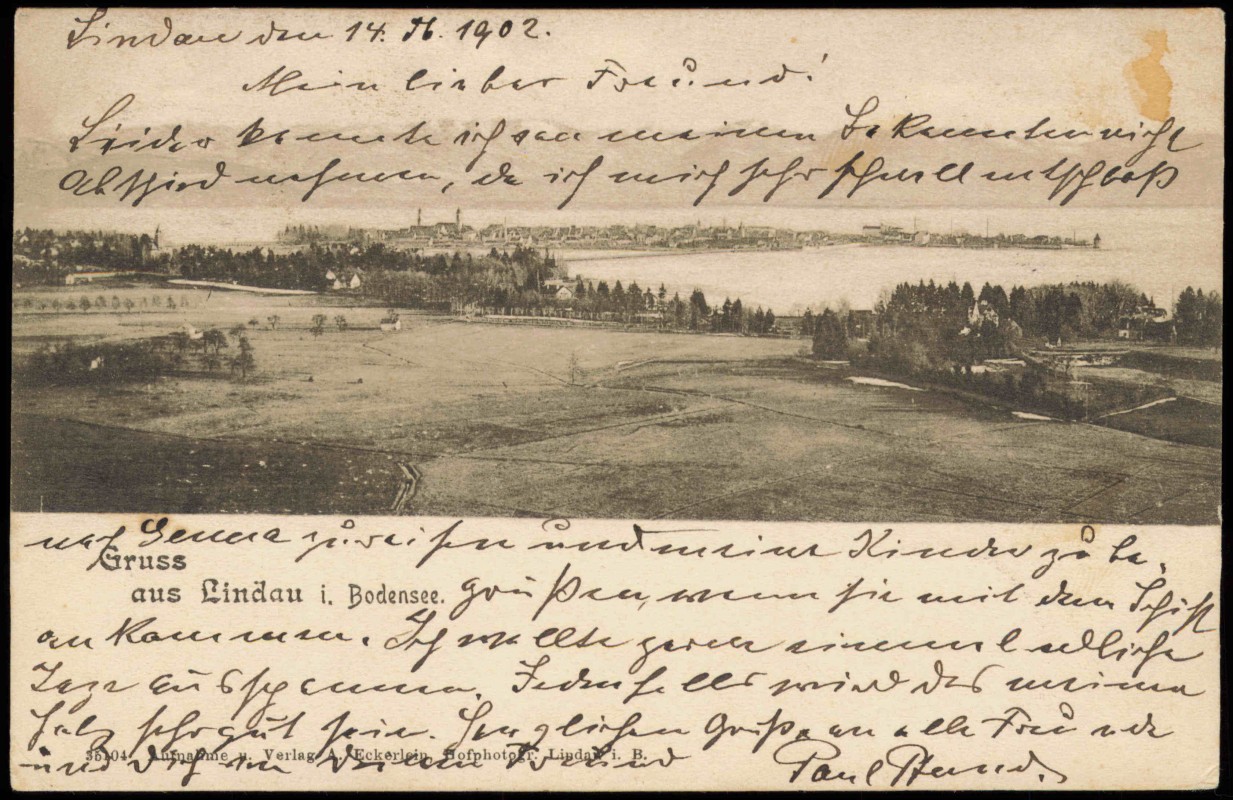 Lindau den 14. IV. 1902.
Mein lieber Freund!
Leider konnte ich von meinen Bekannten nicht
Abschied nehmen, da ich mich sehr schnell entschloß
nach Genua zu reisen und meine Kinder zu be-
Gruss
aus Lindau i. Bodensee.
grüßen, wenn sie mit dem Schiff
ankommen. Ich wollte gerne einmal endliche
Tage ausspannen. Jedenfalls wird das meinem
sehr gut sein. Herzlichen Gruß an alle Freunde
35104 Aufnahme u. Verlag A. Eckerlein, Hofphotogr. Lindau i. B.
und Dich von Deinem Freund
Paul